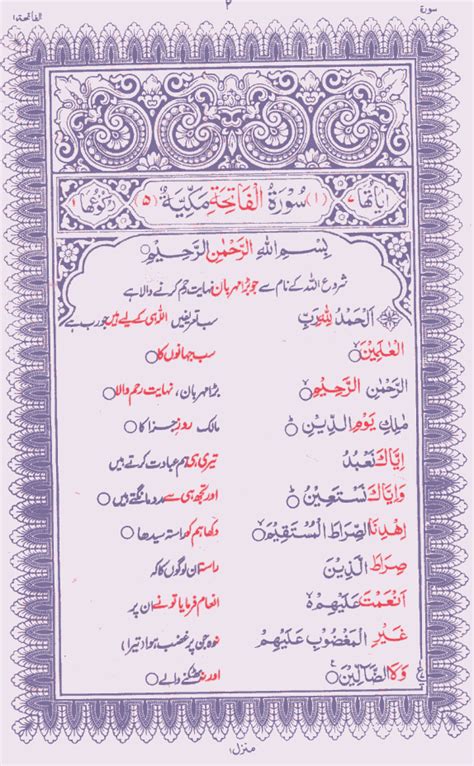 سورة ٢ الفاتحة ١
اٰیَاتُهَا ٧ (١) سُوْرَةُ الْفَاتِحَةِ مَكِّیَّةٌ (٥) رُكُوْعُهَا ١
بِسْمِ اللّٰهِ الرَّحْمٰنِ الرَّحِیْمِ
شروع اللہ کے نام سے جو بڑا مہربان نہایت رحم کرنے والا ہے
اَلْحَمْدُ لِلّٰهِ رَبِّ سب تعریفیں اللہ ہی کے لیے ہیں جو رب ہے
الْعٰلَمِیْنَ سب جہانوں کا
الرَّحْمٰنِ الرَّحِیْمِ بڑا مہربان، نہایت رحم والا
مٰلِكِ یَوْمِ الدِّیْنِ مالک روزِ جزا کا
اِیَّاكَ نَعْبُدُ تیری ہی ہم عبادت کرتے ہیں
وَاِیَّاكَ نَسْتَعِیْنُ اور تجھ ہی سے مدد مانگتے ہیں
اِهْدِنَا الصِّرَاطَ الْمُسْتَقِیْمَ دکھا ہم کو راستہ سیدھا
صِرَاطَ الَّذِیْنَ راستہ ان لوگوں کا کہ
اَنْعَمْتَ عَلَیْهِمْ انعام فرمایا تو نے ان پر
غَیْرِ الْمَغْضُوْبِ عَلَیْهِمْ نہ وہ جن پر غضب ہوا (تیرا)
وَلَا الضَّآلِّیْنَ اور نہ بھٹکنے والے
منزل ١